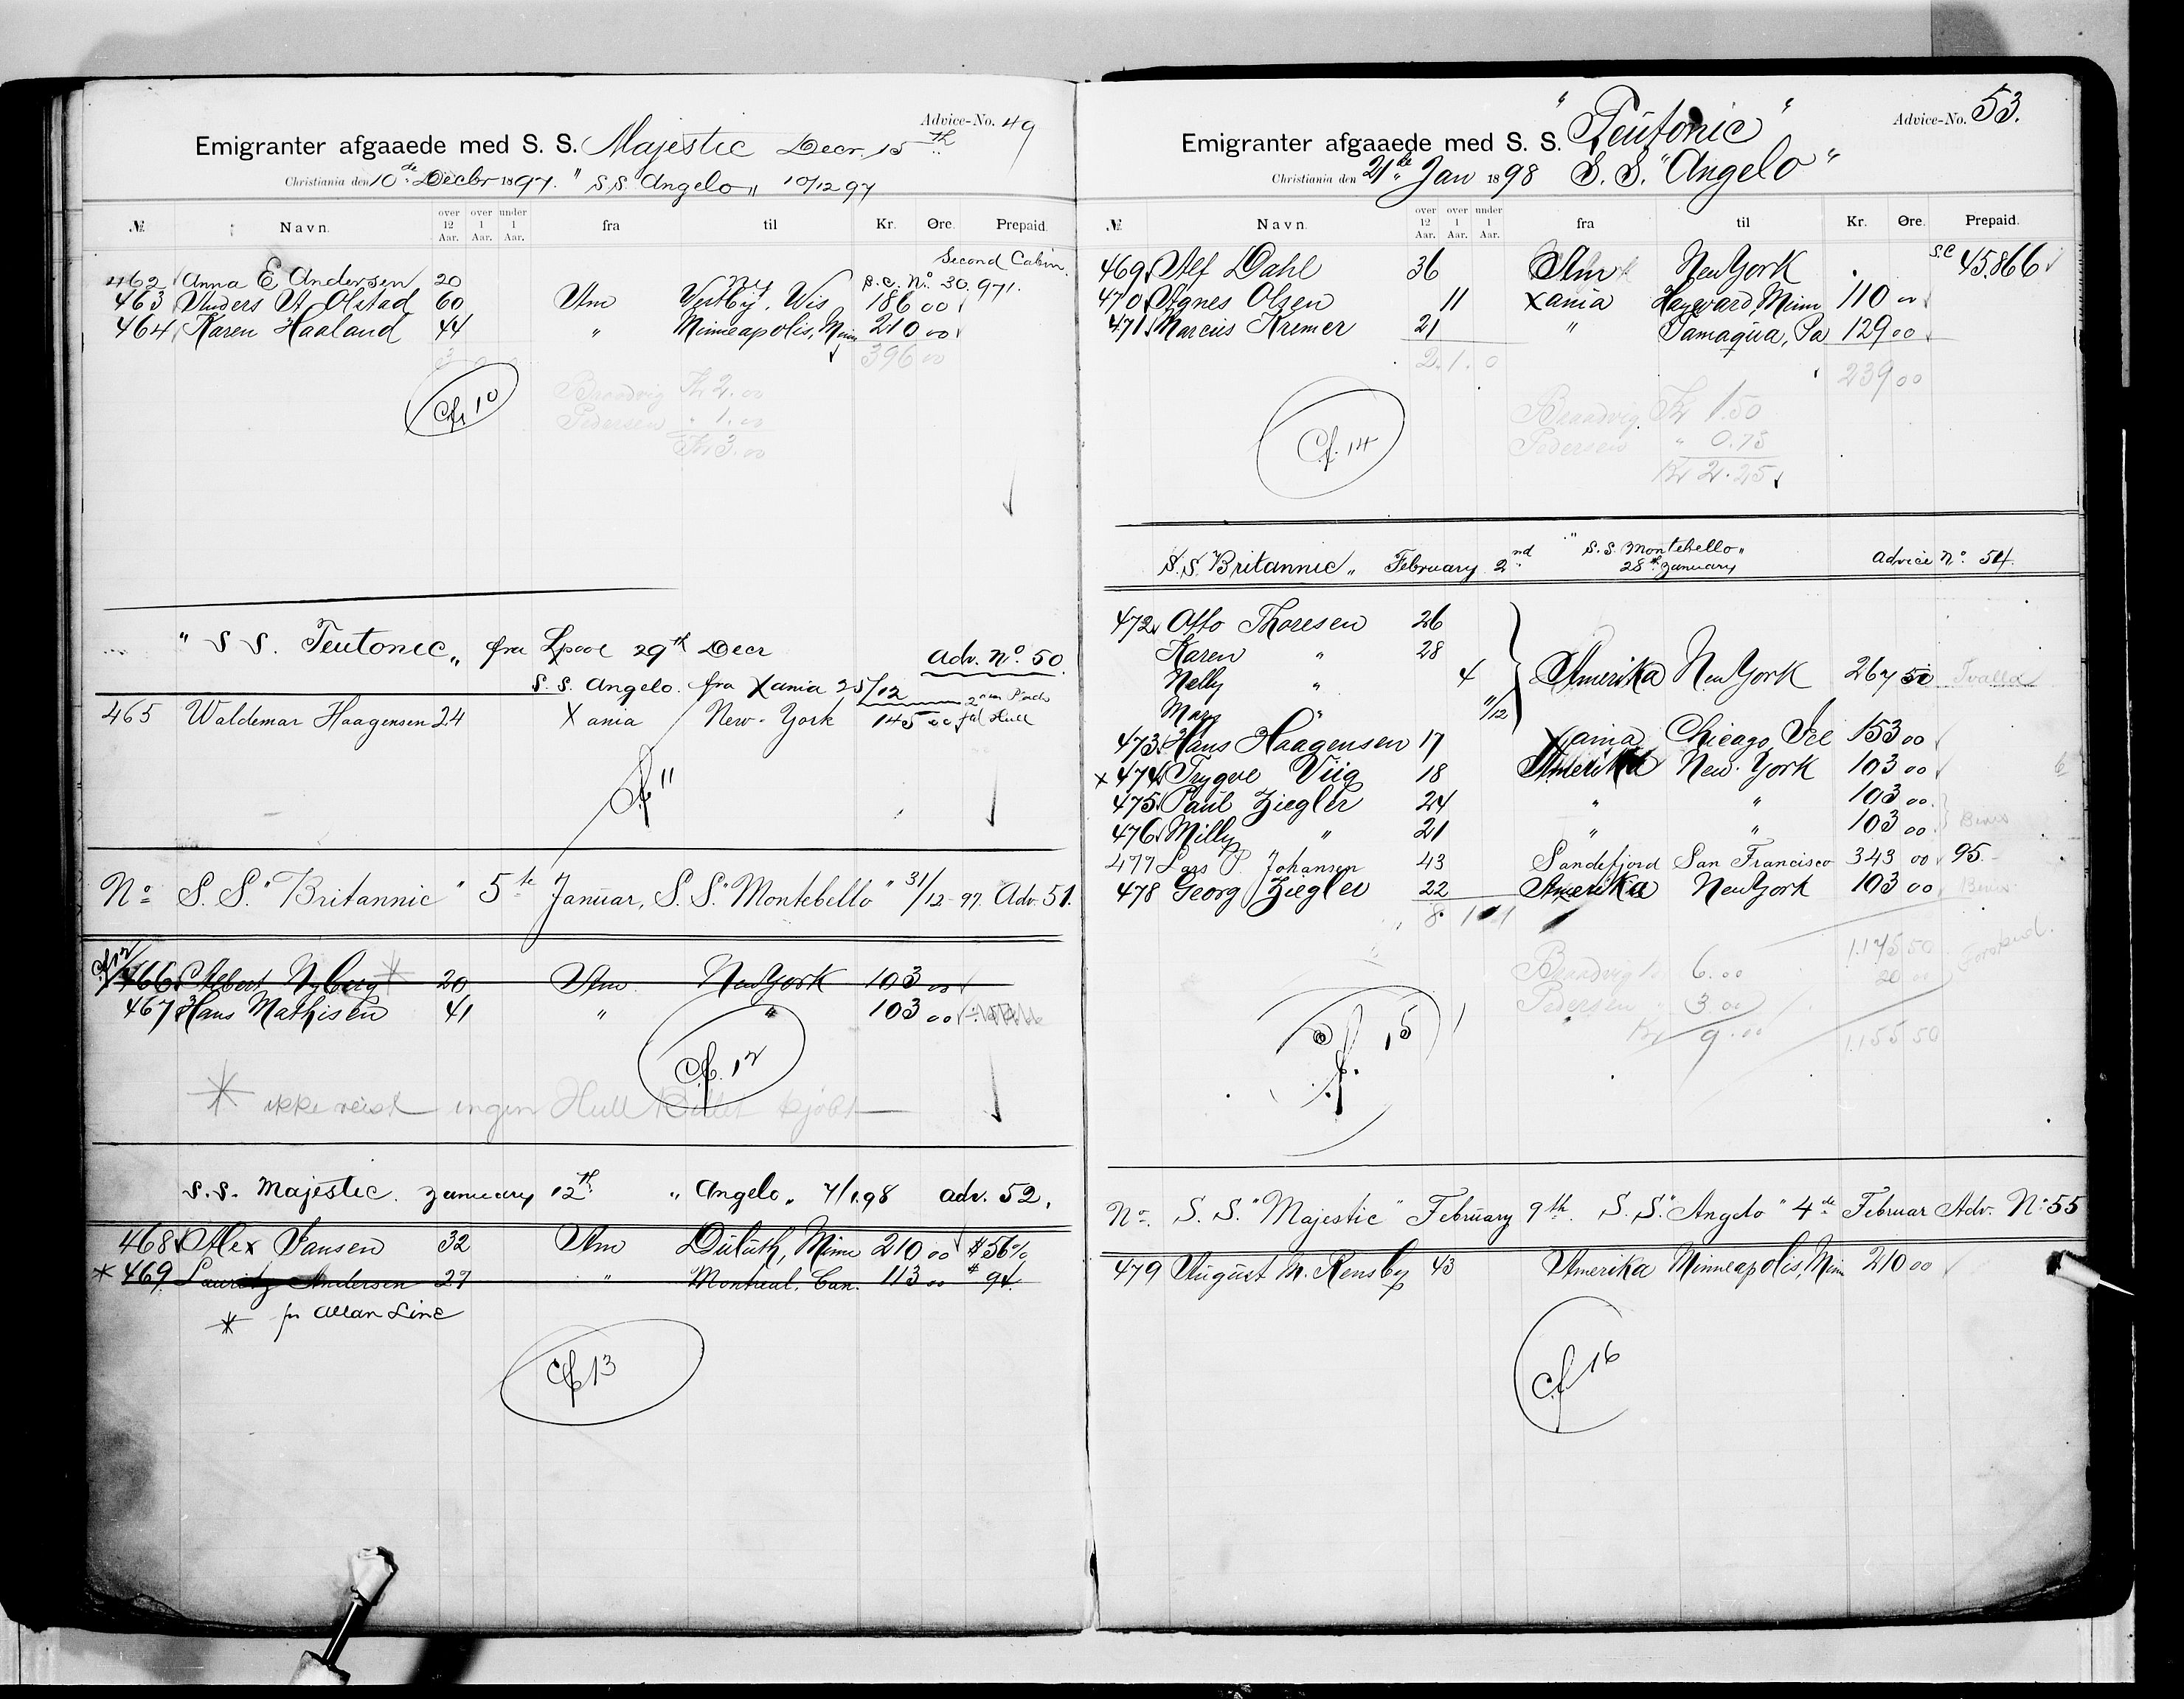 Advice-No. 49
Emigranter afgaaede med S. S. Majestic Decr. 15th
Christiania den 10de Decbr 1897. " S.S. Angelo „ 10/12 97
№ Navn. over 12 Aar. over 1 Aar. under 1 Aar. fra til Kr. Øre. Prepaid.
Second Cabin.
462 Anna E Andersen 20 NY S.C. No. 30.971.
463 Anders A. Olstad 60 Am Westby, Wis 186 00
464 Karen Haaland 44 " Minneapolis, Minn 210 00
3 0 0 396 00
Cf. 10
Braadvig Kr 2.00
Pedersen " 1.00
Kr 3.00
" S S. Teutonic „ fra Lpool 29th Decr Adv. No. 50.
S. S. Angelo. fra Xania 25/12
465 Waldemar Haagensen 24 Xania New-York 145 00 til Hull
Cf 11
No S. S. "Britannic" 5te Januar, S. S. "Montebello" 31/12 97. Adv. 51.
Cf 12
466 Albert Nyberg * 20 Am New York 103 00
467 Hans Mathisen 41 " " 103 00
Cf. 12
* ikke reist ingen Hull Billet kjøbt
S.S. Majestic. January 12th. " Angelo „ 7/1 98 adv. 52.
468 Alex Jansen 32 Am Duluth, Minn 210 00 $56%
* 469. Lauritz Andersen 27 " Montreal. Can. 113 00 $ 94.
* pr Allan Line
Cf 13
Advice-No. 53.
Emigranter afgaaede med S. S. "Teutonic"
Christiania den 21de Jan 1898 S. S. "Angelo"
№ Navn. over 12 Aar. over 1 Aar. under 1 Aar. fra til Kr. Øre. Prepaid.
469 Alf Dahl 36 Am New York S.C 45.866
470 Agnes Olsen 11 Xania Hayward, Minn 110 00
471 Marcus Kremer 21 " Tamaqua, Pa 129 00
2. 1. 0 239 00
Braadvig Kr 1.50
Pedersen " 0.75
Kr 2.25
Cf. 14
S.S. Britannic „ February 2nd " S.S. Montebello „ 28th January Advice No. 54.
472 Otto Thoresen 26
Karen " 28
Nelly " 4 Amerika New York 267 50
Mary " 11/12
473 Hans Haagensen 17 Xania Chicago, Ill 153 00
x 474 Trygve Viig 18 Amerika New-York 103 00
475 Paul Ziegler 24 " " 103 00
476 Milly " 21 " " 103 00
477 Lars P. Johansen 43 Sandefjord San Francisco 343 00 95.-
478 Georg Ziegler 22 Amerika New York 103 00
8 1 1
1.175 50
Braadvig Kr 6.00 20 00
Pedersen " 3 00
Kr 9.00 1.155 50
Cf. 15
No. S. S. "Majestic" February 9th. S. S. "Angelo" 4de Februar Adv. No 55
479 August M. Rensby 43 Amerika Minneapolis, Minn 210 00
Cf 16